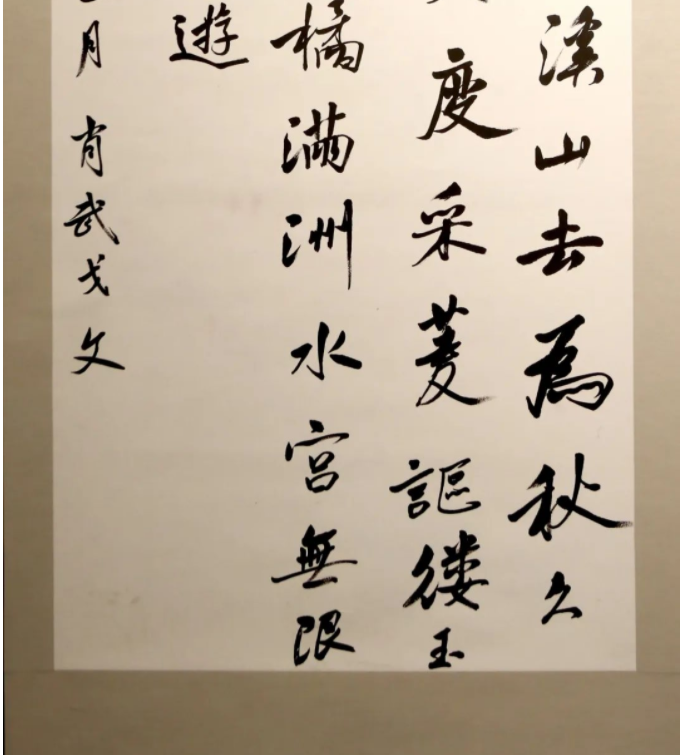 溪山去為秋久
度采菱謳縷玉
橘滿洲水宮無限
遊
月肖武戈文